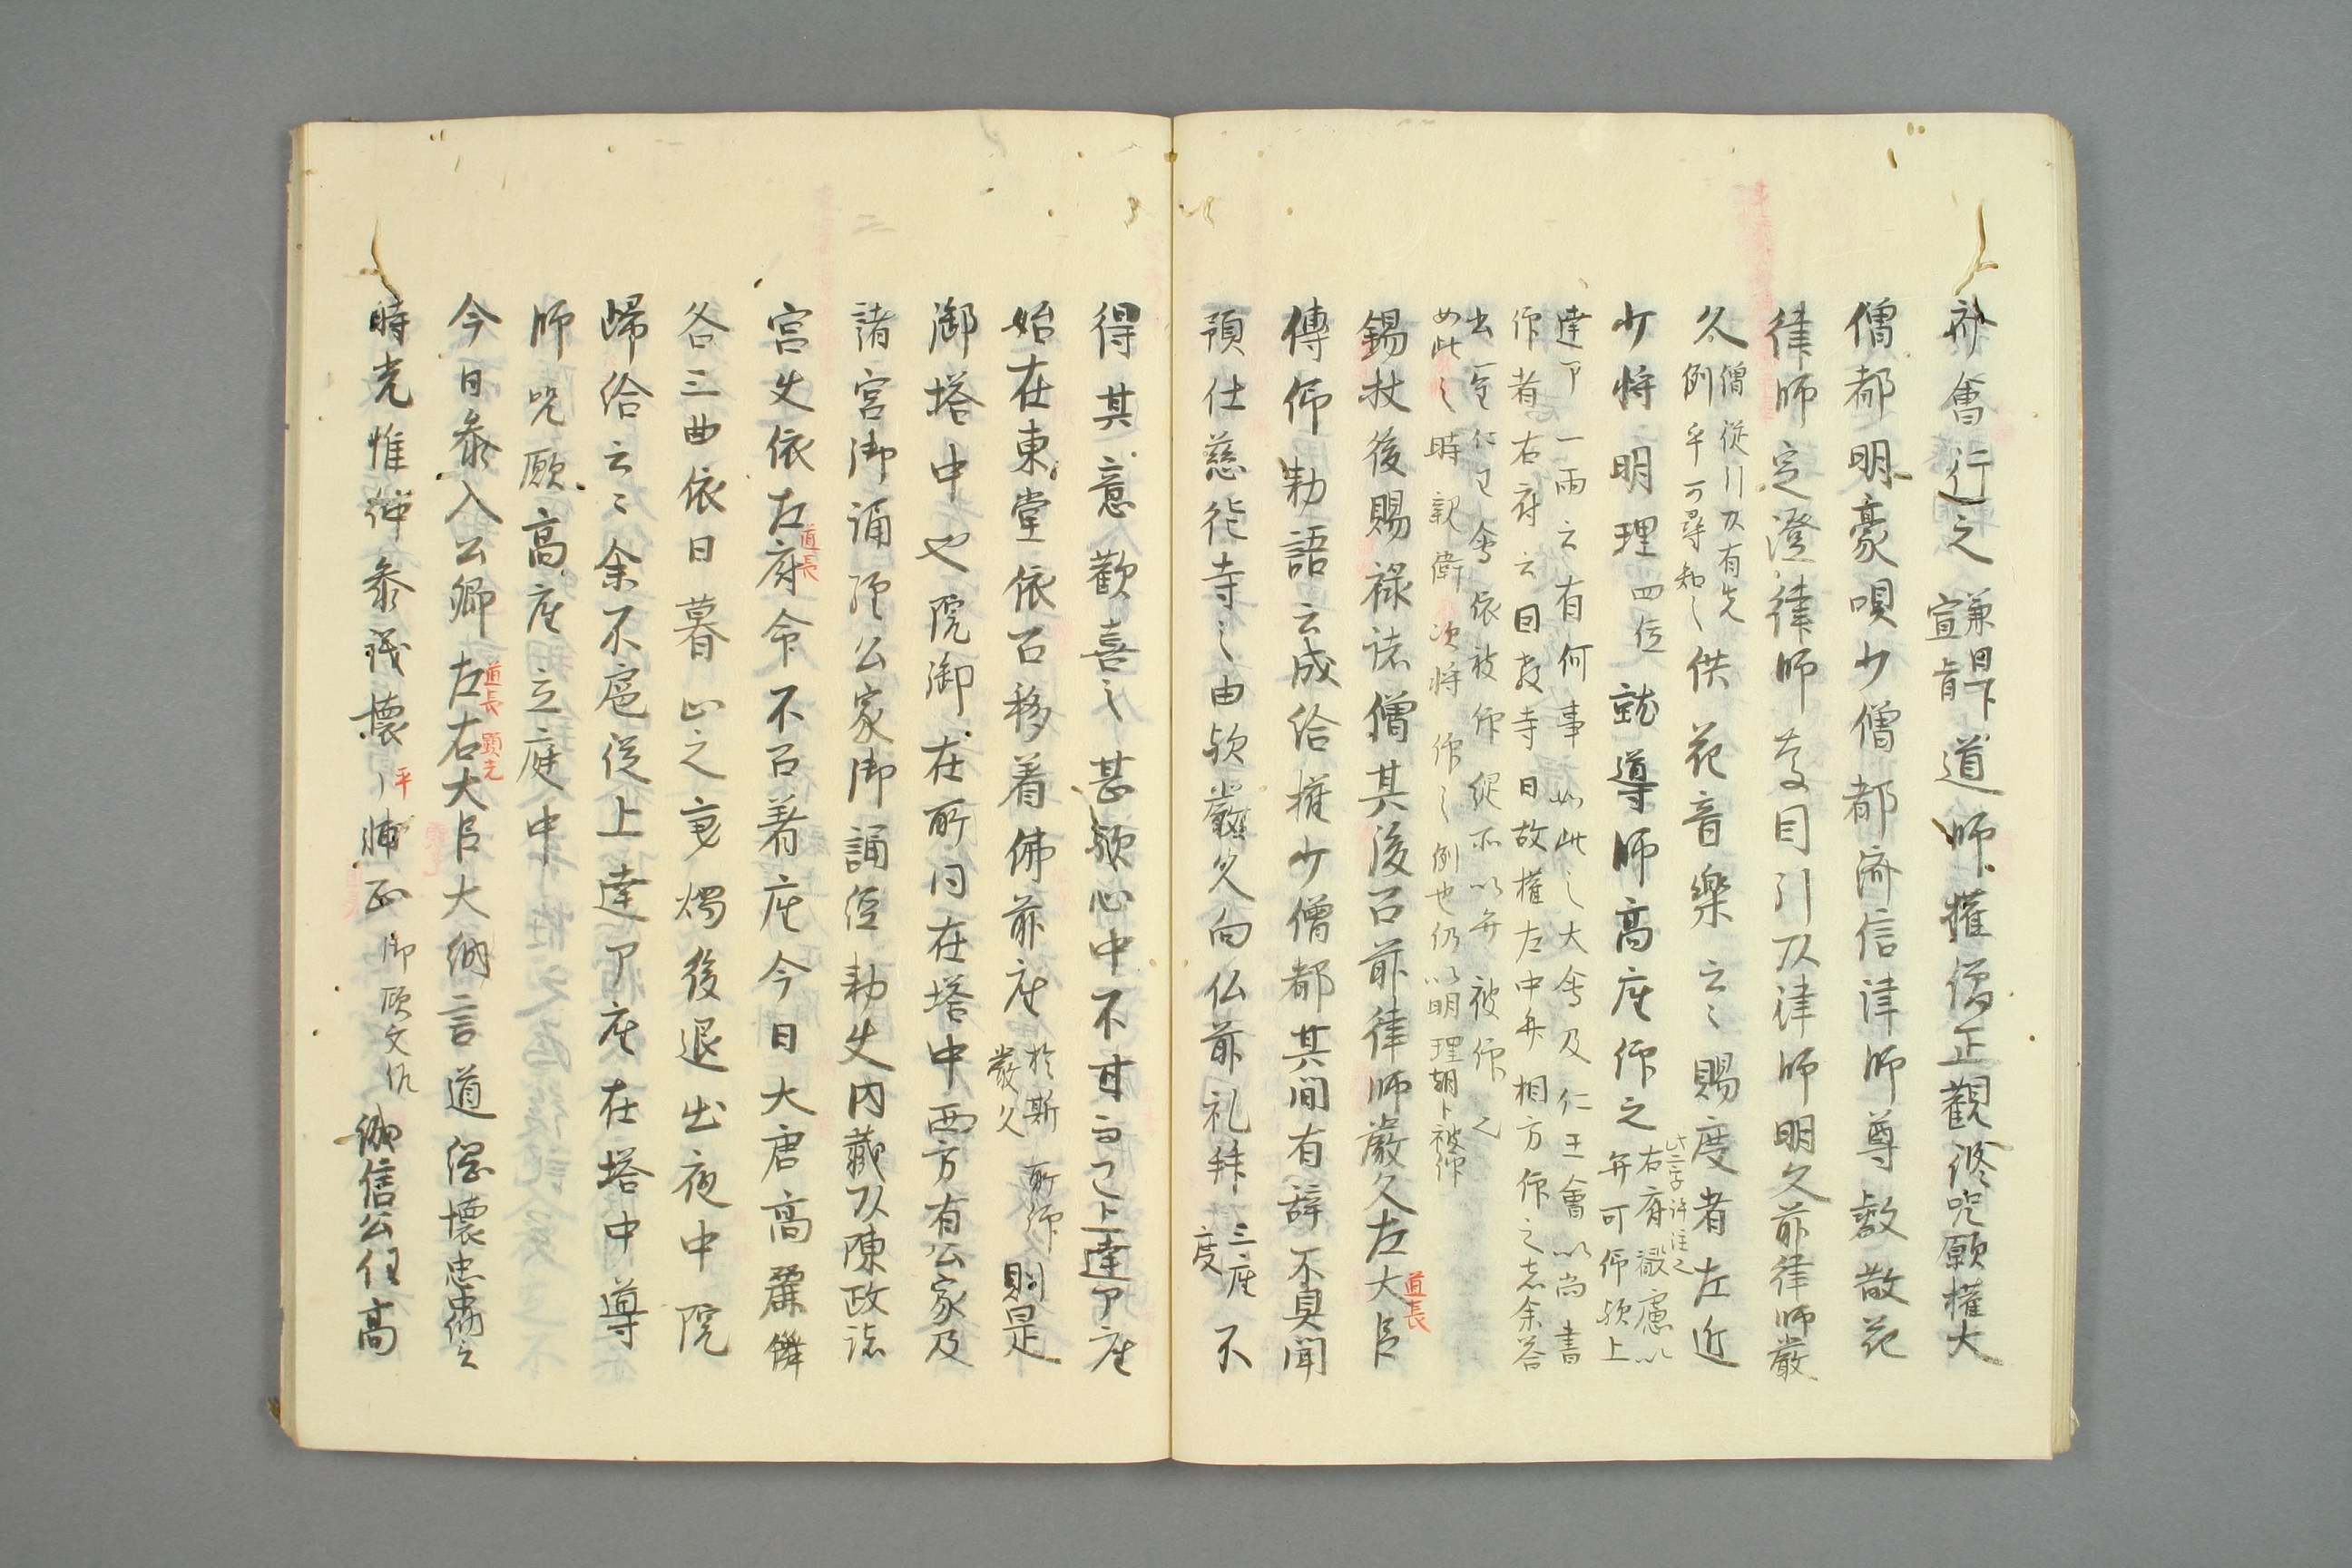 会行之兼日下宣旨道師権僧正観修呪願権大
僧都明豪唄少僧都済信律師尊叡散花
律師定澄律師 目引以律師明久前律師厳
久僧従引以有先例乎可尋知之供花音楽云々賜度者左近
少将明理四位就導師高座仰之此二字許注之右府 慮以弁可仰欤上
達了一両云有何事如此之大会及仁王会以尚書
仰者右府云因教寺日故権左中弁相方仰之志余答
云 仁王会依被仰 不以弁被仰之
如此之時親衛次将仰之例也仍以明理朝臣被仰
錫杖後賜禄諸僧其後召前律師厳久左大臣道長
傳仰勅語云成給権少僧都其間有辞不具聞
預仕慈徳寺之由欤厳久向仏前礼拝三度座不
得其意歓喜之甚欤心中不甘而已上達了座
始在東堂依召移着佛前座於斯厳久所仰則是
御塔中也院御在所同在塔中西方有公家及
諸宮御誦経公家御誦経勅使内蔵以陳政諸
宮使依左府道長命不召着座今日大唐高麗舞
各三曲依日暮止之秉燭後退出夜中院
帰給云々余不扈従上達了座在塔中導
師呪願高座立庭中
今日参入公卿左道長右顕光大臣大納言道綱懐忠 
時光惟仲参議懐平輔正御願文作 信公任高